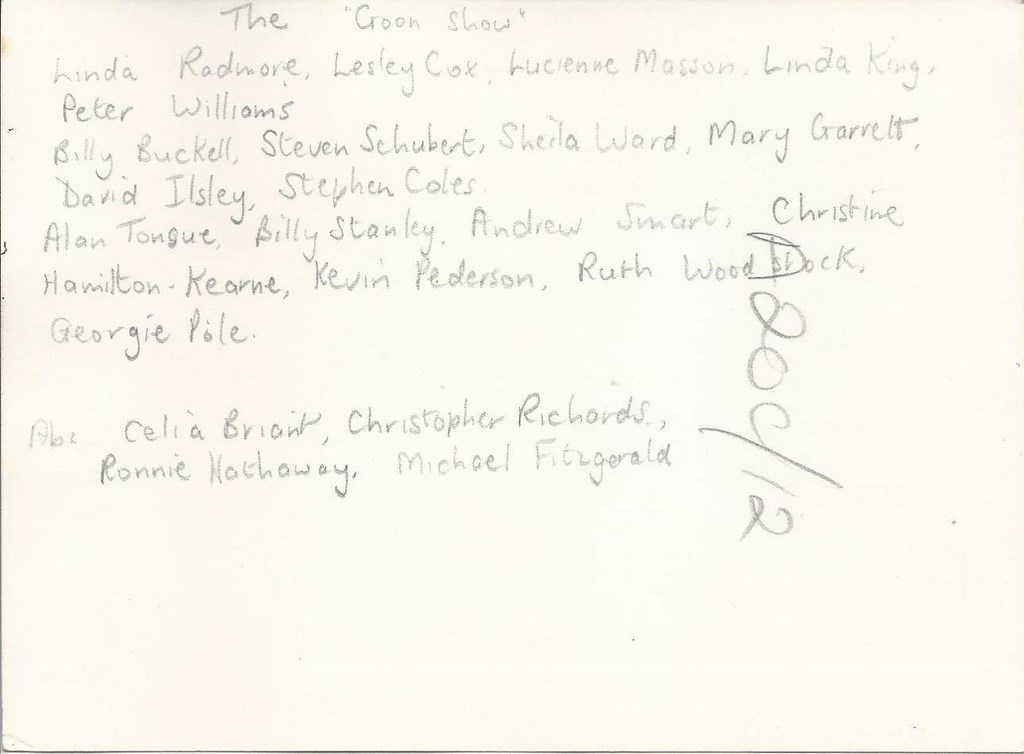 The "Goon Show"
Linda Radmore, Lesley Cox, Lucienne Masson, Linda King,
Peter Williams
Billy Buckell, Steven Schubert, Sheila Ward, Mary Garrett,
David Ilsley, Stephen Coles.
Alan Tongue, Billy Stanley, Andrew Smart, Christine
Hamilton-Kearne, Kevin Pederson, Ruth Woodstock,
Georgie Pole.
Abs Celia Briant, Christopher Richards,
Ronnie Hathaway, Michael Fitzgerald